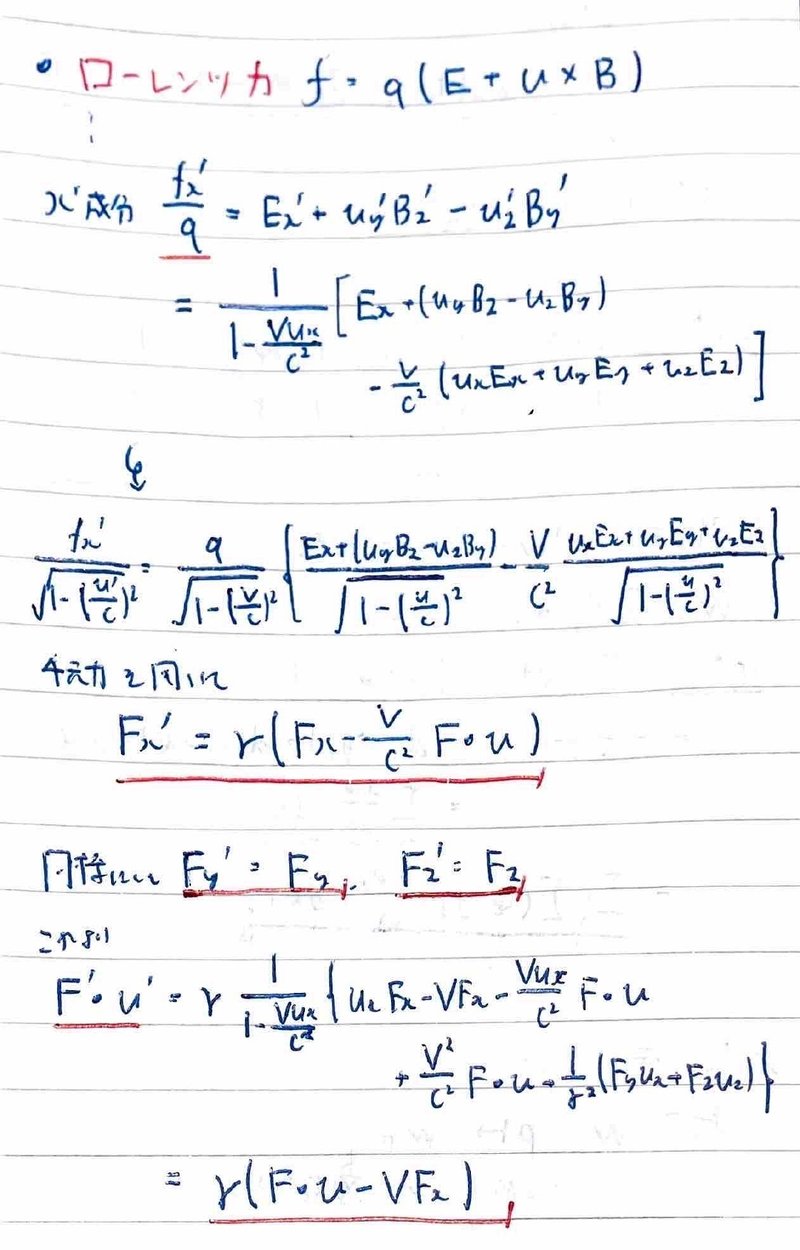 • ローレンツ力 f = q(E + u × B)
⋮
x'成分 fx'/q = Ex' + uy'Bz' - uz'By'
= 1/(1 - Vux/c²) [Ex + (uyBz - uzBy)
- V/c² (uxEx + uyEy + uzEz)]
↓
fx'/√(1-(u'/c)²) = q/√(1-(V/c)²) {(Ex+(uyBz-uzBy))/√(1-(u/c)²) - V/c² (uxEx+uyEy+uzEz)/√(1-(u/c)²)}
4元力を用いて
Fx' = γ(Fx - V/c² F・u)
同様にして Fy' = Fy, Fz' = Fz
これより
F'・u' = γ 1/(1 - Vux/c²) {uxFx - VFx - Vux/c² F・u
+ V²/c² F・u + 1/γ² (Fyuy + Fzuz)}
= γ(F・u - VFx)